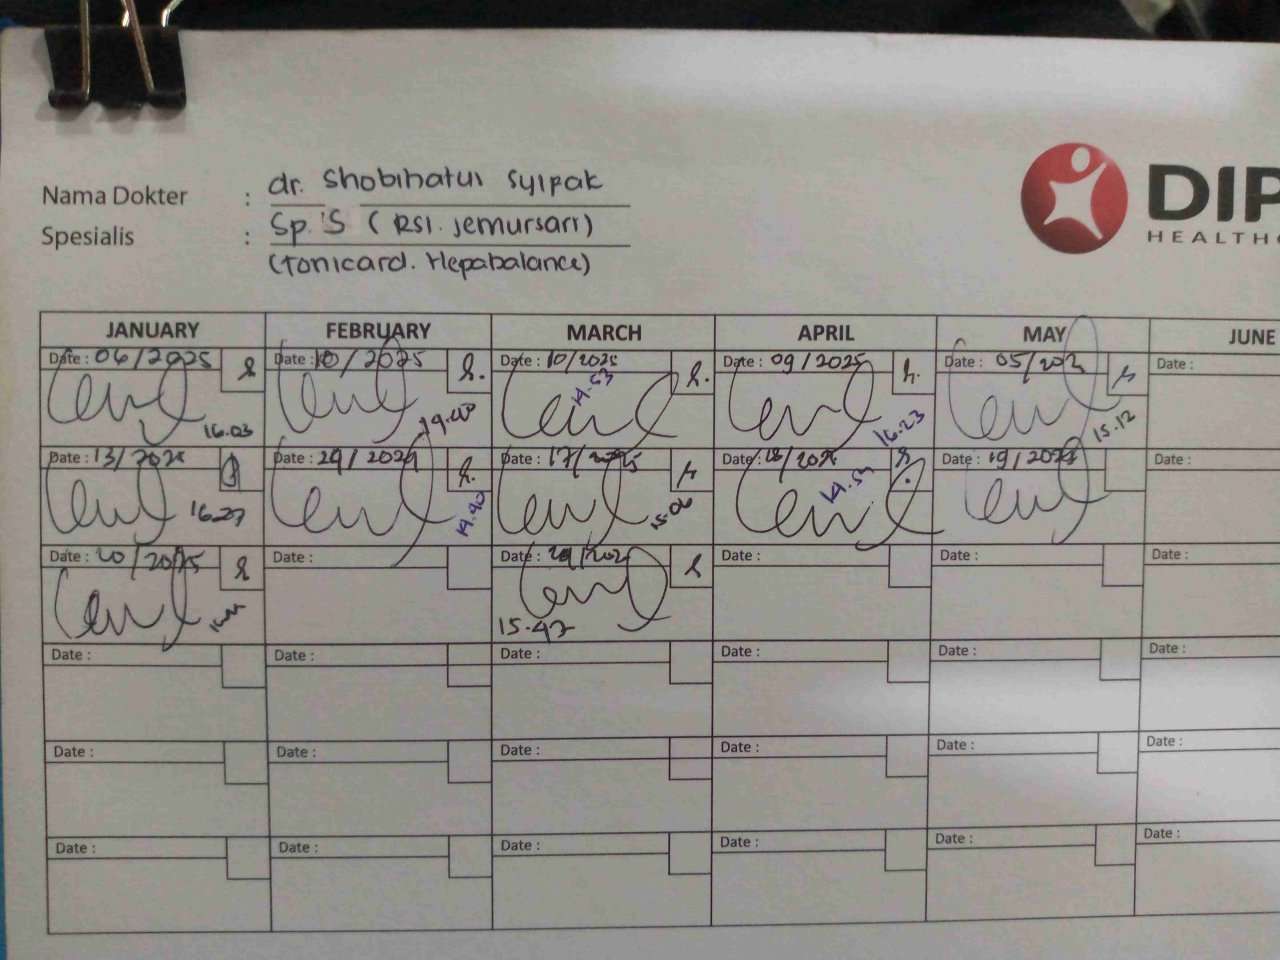 Nama Dokter : dr. Shobihatul Syifak
Spesialis : Sp. S ( RSI. Jemursari)
(Tonicard. Hepabalance)
DIP
HEALTHC
JANUARY FEBRUARY MARCH APRIL MAY JUNE
Date : 06/2025 Date : 10/2025 Date : 10/2025 Date : 09/2025 Date : 05/202 Date :
16.03 19.40 14.53 16.23 15.12
Date : 13/2025 Date : Date : 17/2025 Date : 18/2025 Date : 19/202 Date :
16.27 14.40 15.06 14.53
Date : 20/2025 Date : Date : Date : Date : Date :
15.42
Date : Date : Date : Date : Date : Date :
Date : Date : Date : Date : Date : Date :
Date : Date : Date : Date : Date : Date :